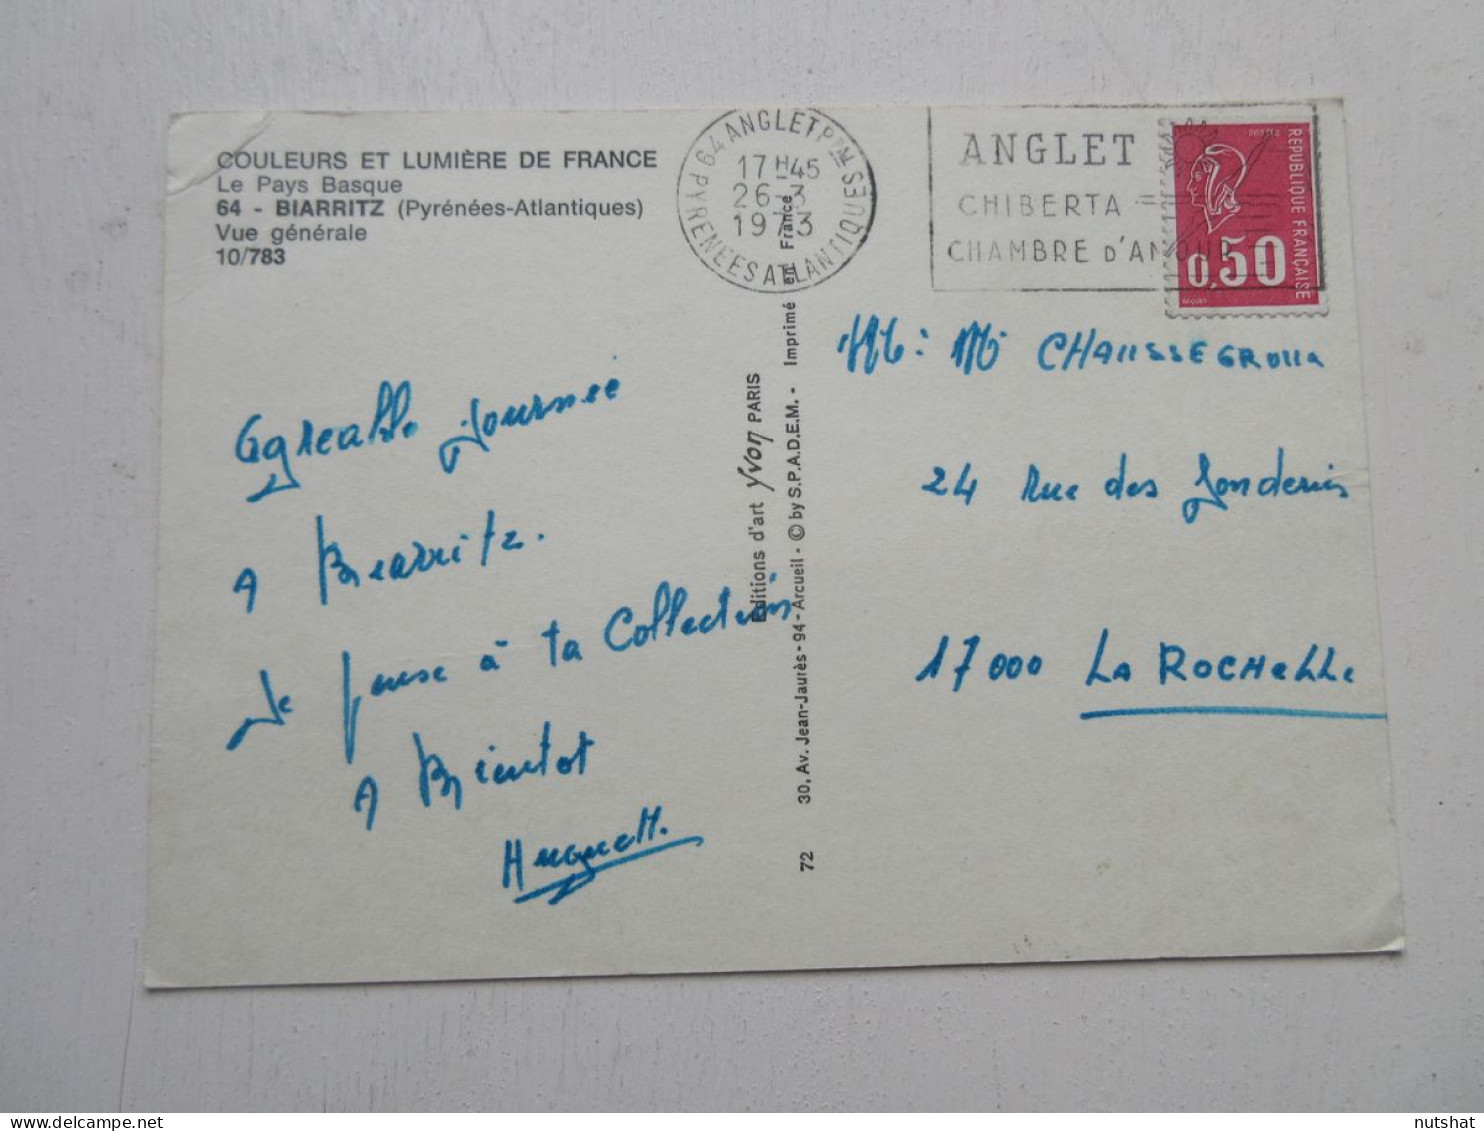 COULEURS ET LUMIÈRE DE FRANCE
Le Pays Basque
64 - BIARRITZ (Pyrénées-Atlantiques)
Vue générale
10/783
64 ANGLET Pal
17 H 45
26-3
1973
PYRENEES ATLANTIQUES
ANGLET
CHIBERTA
CHAMBRE D'AMOUR
POSTES
REPUBLIQUE FRANÇAISE
0,50
BEQUET
Agreable journée
A Biarritz.
Je pense à ta Collection
A Bientot
Huguette
Editions d'art Yvon PARIS
30, Av. Jean-Jaurès - 94 - Arcueil - © by S.P.A.D.E.M. - Imprimé en France
72
CHAUSSEGROUX
24 Rue des
17000 LA ROCHELLE
nutshat